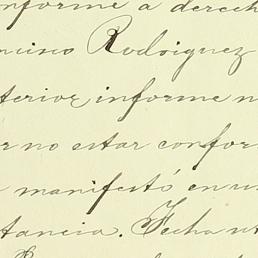 nforme a derech
ncisco Rodriguez
terior, informe n
r no estar confor
manifestó en u
tancia. Fecha ut